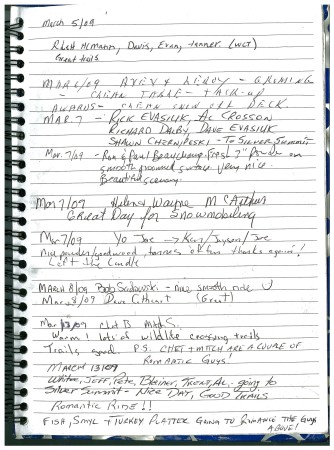 March 5/09
Rhett McMann, Davis, Evan, Tanner (WCT)
Great trails
MAR 6/09 AVERY & LEROY - GROOMING
- CLEAN TABLE - PACK-UP
AWARDS - CLEAN SNOW OFF DECK
MAR. 7 - RICK EVASIUK, AL CROSSON
RICHARD DALBY, DAVE EVASIUK
SHAWN CHERNIPESKI - TO SILVER SUMMIT
Mar. 7/09 - Ron & Paul Beauchamp Fresh 7" Powder on
smooth groomed surface very nice.
Beautiful scenery.
Mar 7/09 Helen & Wayne McArthur
Great Day for Snowmobiling
Mar 7/09 Yo Joe → Ken/Jayson/Joe
Nice powder/goodwood, thanks again!
Left the candle
MARCH 8/09 Bob Sadowski - nice smooth ride
Mar 8/09 Dave (Great)
Mar 13/09 Chet B Mitch S.
Warm! lots of wildlife crossing trails
Trails good. P.S. CHET + MITCH ARE A COUPLE OF
ROMANTIC GUYS!
MARCH 13/09
White, Jeff, Pete, Blainer, Trent, Al. going to
Silver Summit - Nice Day, Good Trails
Romantic Ride!!
FISH, SMYL + TURKEY PLATTER GOING TO ROMANCE THE GUYS
ABOVE!